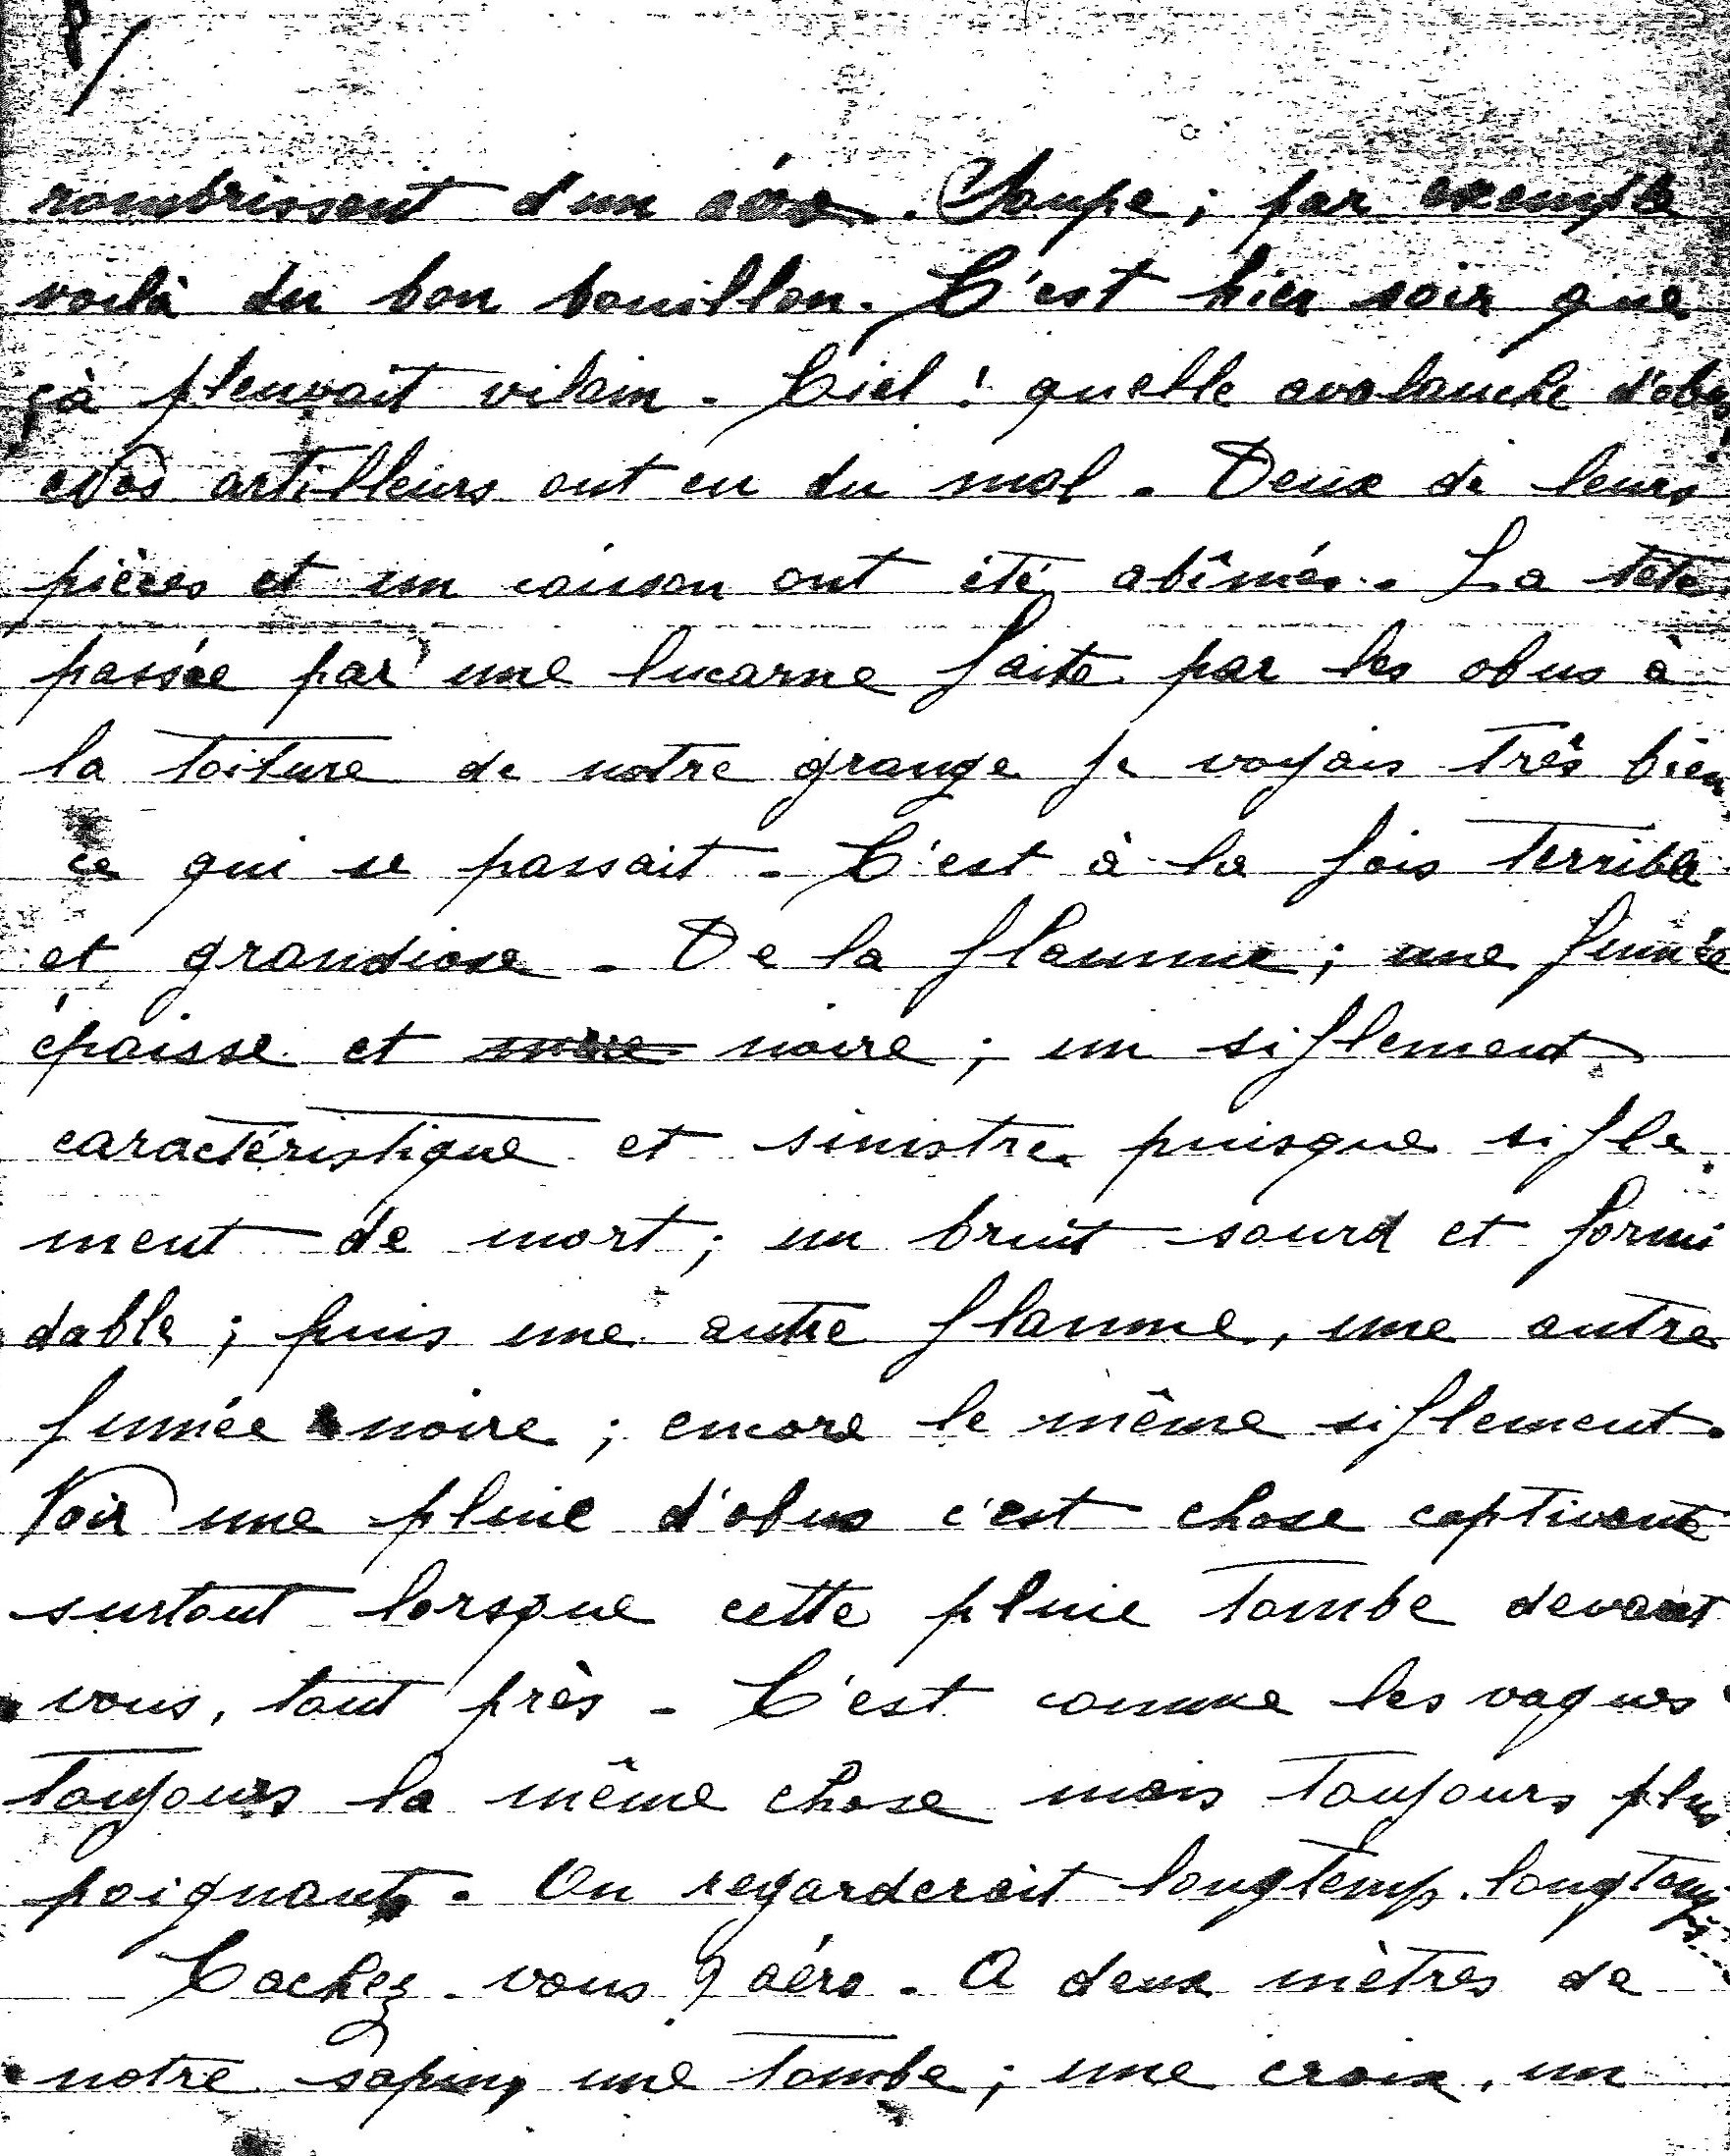 rombrissent d'un aéro. Soupe ; par exemple
voilà du bon bouillon. C'est hier soir que
çà pleuvait vilain. Ciel ! quelle avalanche d'obus
Nos artilleurs ont eu du mal. Deux de leurs
pièces et un caisson ont été abîmés. La tête
passée par une lucarne faite par les obus à
la toiture de notre grange je voyais très bien
ce qui se passait. C'est à la fois terrible
et grandiose. De la flamme ; une fumée
épaisse et noire ; un siflement
caractéristique et sinistre puisque sifle
ment de mort ; un bruit sourd et formi
dable ; puis une autre flamme, une autre
fumée noire ; encore le même siflement.
Voir une pluie d'obus c'est chose captivante
surtout lorsque cette pluie tombe devant
vous, tout près. C'est comme les vagues
toujours la même chose mais toujours plus
poignant. On regarderait longtemps, longtemps
Cachez-vous, aéro. A deux mètres de
notre sapin, une tombe ; une croix, un